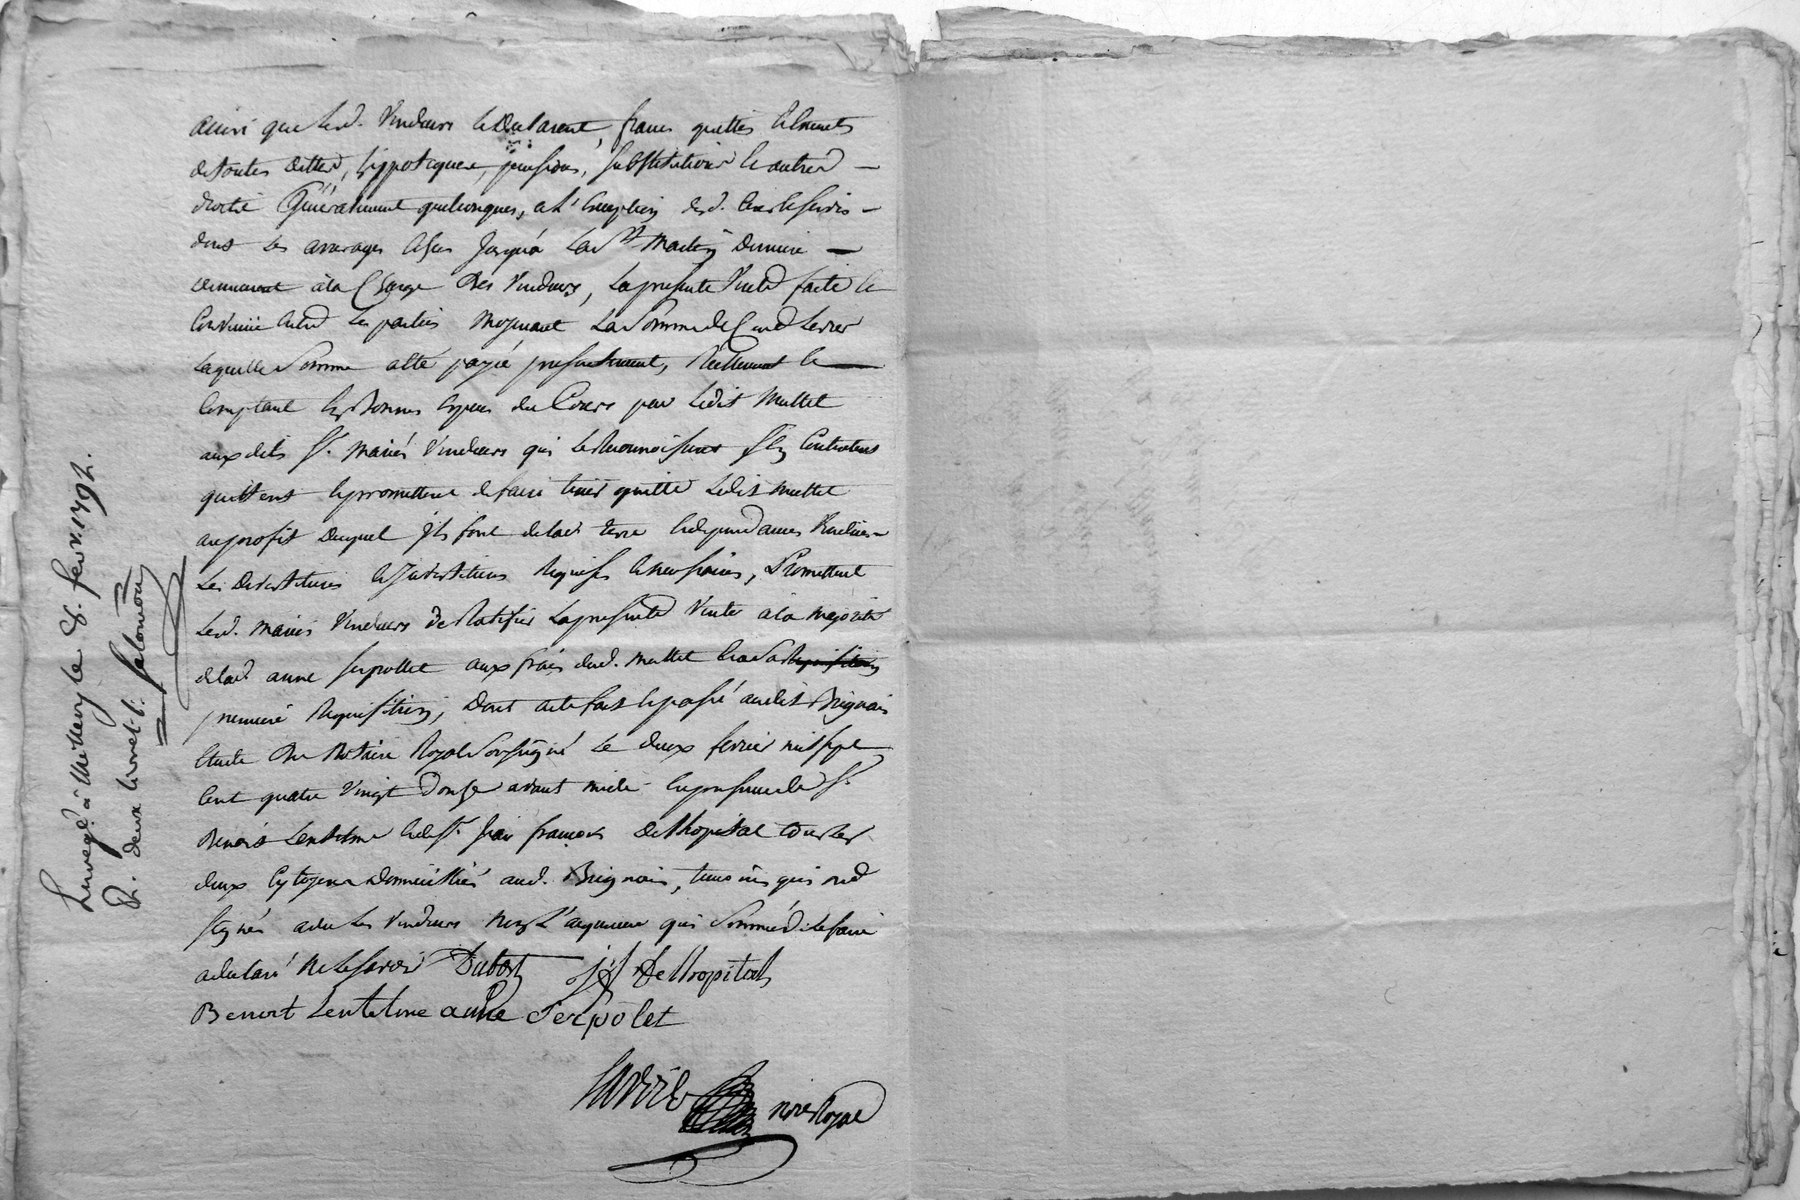 ainsi que lesd. Vendeurs le Declarent, francs quittes et exempts
de toutes dettes, hyppoteques, pensions, substitutions et autres
droits Généralement quelconques, a L'exception desd. Cens et servis
dont les arrerages echus jusqu'à La St Martin Derniere
demeurent à la Charge Des Vendeurs, La presente Vente faite et
Convenüe entre les parties Moyennant La Somme de Cent Livres
Laquelle Somme a été payée presentement, Réellement et
Comptant en bonnes especes du Cours par Ledit Mullet
auxdits Srs. Mariés Vendeurs qui Le Reconnoissent s'en Contentent
quittent et promettent de faire tenir quitte Ledit Mullet
au profit Duquel ils font de lad. terre et dependances Vendües
Les Devestitures et Investitures Requises et necessaires, Promettent
Lesd. mariés Vendeurs De Ratifier La presente Vente à la majorité
de lad. anne serpollet aux frais dud. mullet et a sa requisition
premiere Requisition, Dont acte fait et passé audit Brignais
Etude Du Notaire Royal Soussigné Le deux fevrier mil sept
Cent quatre Vingt Douze avant midi en presence de Sr.
Benoit Lentelme et de Sr. Jean françois Delhopital tous les
deux Citoyens Domiciliés aud. Brignais, temoins qui ont
signés avec Les Vendeurs non L'acquereur qui Sommé de le faire
a declaré ne le savoir Dubost jf Delhopital
Benoit Lentelme anne Serpolet
nore Royal
Enregé. à Millery le 8. fevr. 1792.
R. deux livres